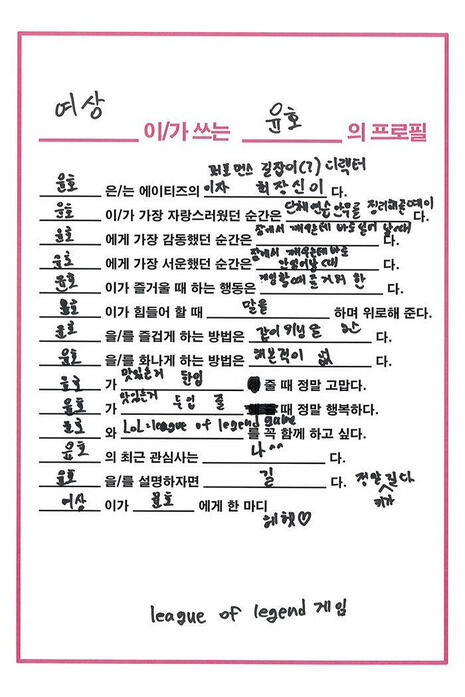 여상 이/가 쓰는 윤호 의 프로필
퍼포먼스 길잡이(?) 디렉터
윤호 은/는 에이티즈의 이자 최장신이 다.
윤호 이/가 가장 자랑스러웠던 순간은 단체연습 안무를 정리해줄때이 다.
윤호 에게 가장 감동했던 순간은 잠에서 깨웠는데 바로 일어날때 다.
윤호 에게 가장 서운했던 순간은 잠에서 깨웠는데 바로 안일어날때 다.
윤호 이/가 즐거울 때 하는 행동은 게임할때 한 다.
윤호 이/가 힘들어 할 때 말을 하며 위로해 준다.
윤호 을/를 즐겁게 하는 방법은 같이 다.
윤호 을/를 화나게 하는 방법은 해본적이 없 다.
윤호 가 맛있는거 한입 줄 때 정말 고맙다.
윤호 가 맛있는거 두입 줄 때 정말 행복하다.
윤호 와 LoL:league of legend game 를 꼭 함께 하고 싶다.
윤호 의 최근 관심사는 나^^ 다.
윤호 을/를 설명하자면 길 다. 정말 길다
키가
여상 이가 윤호 에게 한 마디
헤헷♡
league of legend 게임